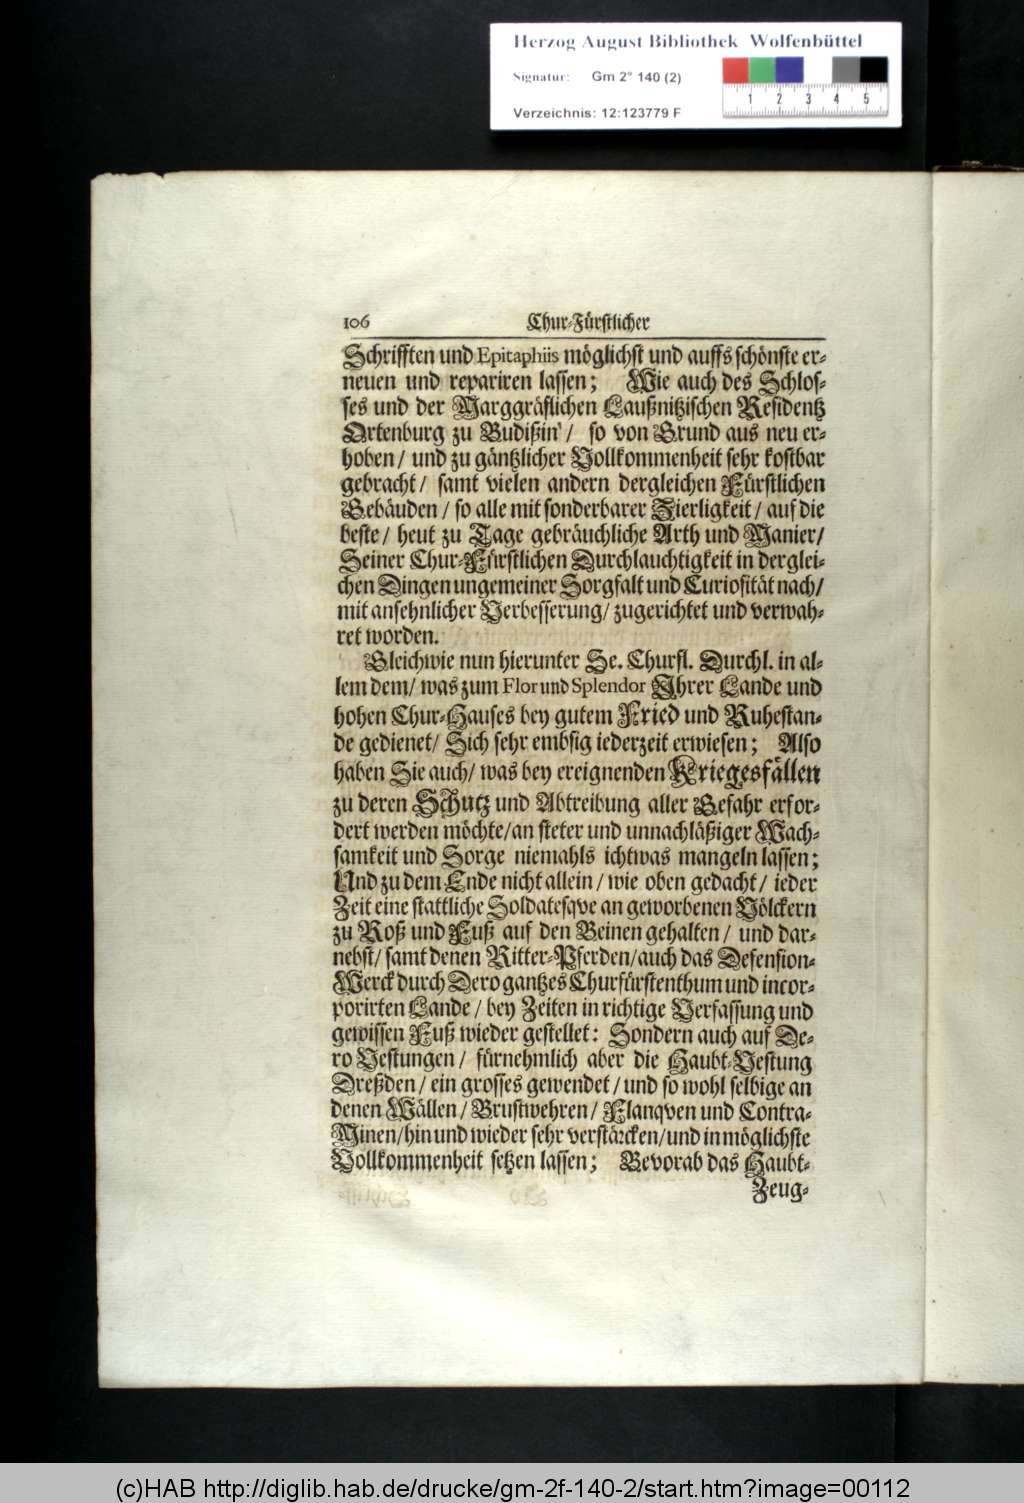 Herzog August Bibliothek Wolfenbüttel
Signatur: Gm 2° 140 (2)
1 2 3 4 5
Verzeichnis: 12:123779 F
106 Chur-Fürstlicher
Schrifften und Epitaphiis möglichst und auffs schönste er-
neuen und repariren lassen; Wie auch des Schlos-
ses und der Marggräflichen Laußnitzischen Residentz
Ortenburg zu Budißin / so von Grund aus neu er-
hoben / und zu gäntzlicher Vollkommenheit sehr kostbar
gebracht / samt vielen andern dergleichen Fürstlichen
Gebäuden / so alle mit sonderbarer Zierligkeit / auf die
beste / heut zu Tage gebräuchliche Arth und Manier /
Seiner Chur-Fürstlichen Durchlauchtigkeit in derglei-
chen Dingen ungemeiner Sorgfalt und Curiosität nach /
mit ansehnlicher Verbesserung / zugerichtet und verwah-
ret worden.
Gleichwie nun hierunter Se. Churfl. Durchl. in al-
lem dem / was zum Flor und Splendor Ihrer Lande und
hohen Chur-Hauses bey gutem Fried und Ruhestan-
de gedienet / Sich sehr embsig iederzeit erwiesen; Also
haben Sie auch / was bey ereignenden Kriegesfällen
zu deren Schutz und Abtreibung aller Gefahr erfor-
dert werden möchte / an steter und unnachläßiger Wach-
samkeit und Sorge niemahls ichtwas mangeln lassen;
Und zu dem Ende nicht allein / wie oben gedacht / ieder
Zeit eine stattliche Soldatesqve an geworbenen Völckern
zu Roß und Fuß auf den Beinen gehalten / und dar-
nebst / samt denen Ritter-Pferden / auch das Defension-
Werck durch Dero gantzes Churfürstenthum und incor-
porirten Lande / bey Zeiten in richtige Verfassung und
gewissen Fuß wieder gestellet: Sondern auch auf De-
ro Vestungen / fürnehmlich aber die Haubt-Vestung
Dreßden / ein grosses gewendet / und so wohl selbige an
denen Wällen / Brustwehren / Flanqven und Contra-
Minen / hin und wieder sehr verstärcken / und in möglichste
Vollkommenheit setzen lassen; Bevorab das Haubt-
Zeug-
(c)HAB http://diglib.hab.de/drucke/gm-2f-140-2/start.htm?image=00112